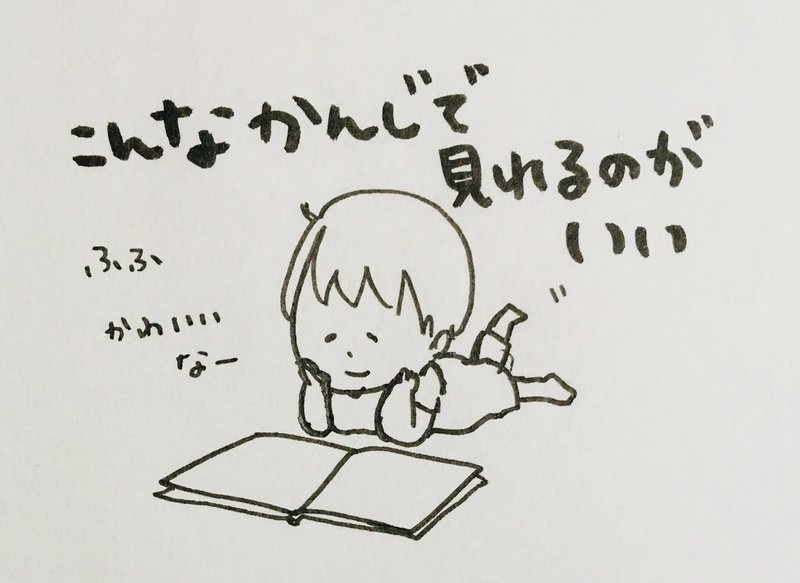 こんなかんじで
見れるのが
いい
ふふ
かわいい
なー